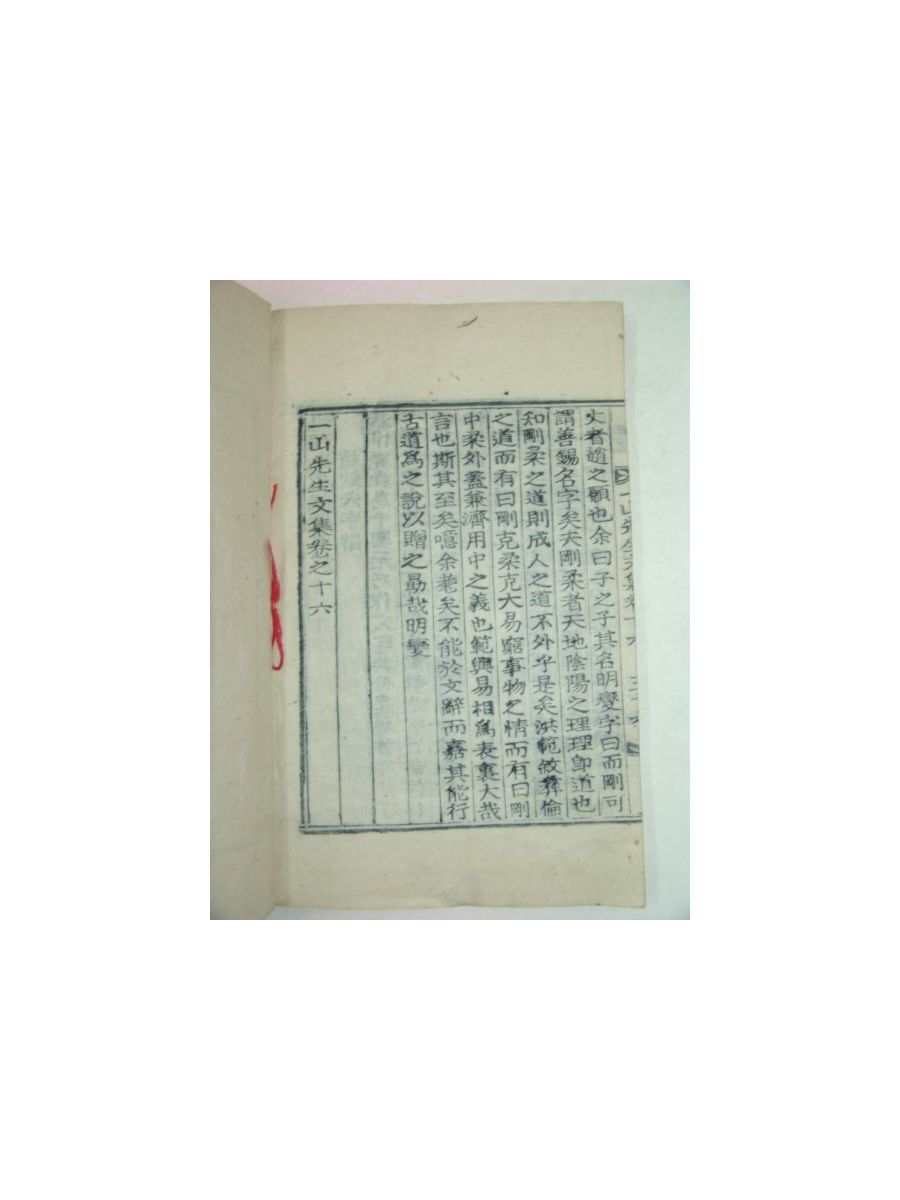 一山先生文集卷十六
文者趙之願也余曰子之子其名明燮字曰而剛可
謂善錫名字矣夫剛柔者天地陰陽之理理卽道也
知剛柔之道則成人之道不外乎是矣洪範敘彝倫
之道而有曰剛克柔克大易窮事物之情而有曰剛
中柔外蓋兼濟用中之義也範與易相爲表裏大哉
言也斯其至矣噫余耄矣不能於文辭而嘉其能行
古道爲之說以贈之勗哉明燮
一山先生文集卷之十六